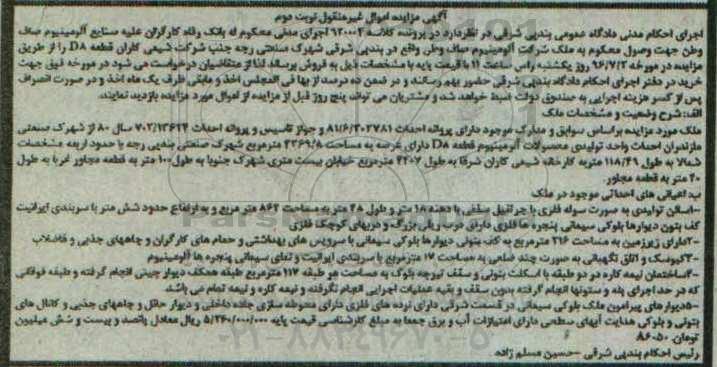 آگهی مزایده اموال غیرمنقول نوبت دوم
اجرای احکام مدنی دادگاه عمومی بندپی شرقی در نظر دارد در پرونده کلاسه اجرای مدنی محکوم له بانک رفاه کارگران علیه صنایع آلومینیوم صاف
وطن جهت وصول محکوم به ملک شرکت آلومینیوم صاف وطن واقع در بندپی شرقی شهرک صنعتی رجه جنب شرکت شیمی کاران قطعه D8 را از طریق
مزایده در مورخه 96/7/2 روز یکشنبه راس ساعت 11 با قیمت پایه با مشخصات ذیل به فروش برساند لذا از متقاضیان درخواست می شود در مورخه فوق جهت
خرید در دفتر اجرای احکام دادگاه بندپی شرقی حضور بهم رسانند و در ضمن ده درصد از بها فی المجلس اخذ و مابقی ظرف یک ماه اخذ و در صورت انصراف
پس از کسر هزینه اجرایی به صندوق دولت ضبط خواهد شد و مشتریان می توانند پنج روز قبل از مزایده از اموال مورد مزایده بازدید نمایند.
الف: شرح وضعیت و مشخصات ملک
ملک مورد مزایده براساس سوابق و مدارک موجود دارای پروانه احداث 81/6/302781 و جواز تاسیس و پروانه احداث 702/13624 سال 80 از شهرک صنعتی
مازندران احداث واحد تولیدی محصولات آلومینیوم قطعه D8 دارای عرصه به مساحت 4369/8 مترمربع شهرک صنعتی بندپی رجه با حدود اربعه مشخصات
شمالا به طول 118/49 متر به کارخانه شیمی کاران شرقا به طول خیابان بیست متری شهرک جنوبا به طول 100 متر به قطعه مجاور غربا به طول
40 متر به قطعه مجاور.
ب: اعیانی های احداثی موجود در ملک
1-سالن تولیدی به صورت سوله فلزی با جرثقیل سقفی با دهنه 18 متر و طول 48 متر به مساحت 864 متر مربع و به ارتفاع حدود شش متر با سربندی ایرانیت
کف بتون دیوارها بلوکی سیمانی پنجره ها فلزی دارای درب ریلی بزرگ و دربهای کوچک فلزی
2-دارای زیرزمین به مساحت 216 مترمربع به کف بتونی دیوارها بلوکی سیمانی با سرویس های بهداشتی و حمام های کارگران و چاههای جذبی و فاضلاب
3-کیوسک و اتاق نگهبانی به صورت چند ضلعی به مساحت 17 مترمربع با سربندی ایرانیت و نمای سیمانی پنجره ها آلومینیوم
4-ساختمان نیمه کاره در دو طبقه با اسکلت بتونی و سقف تیرچه بلوک به مساحت هر طبقه 117 مترمربع طبقه همکف دیوار چینی انجام گرفته و طبقه فوقانی
که در حد اجرای پله و ستونها انجام گرفته بدون سقف و بقیه عملیات اجرایی انجام نگرفته و نیمه کاره و نیمه تمام می باشد.
5-دیوارهای پیرامون ملک بلوکی سیمانی در قسمت شرقی دارای نرده های فلزی دارای محوطه سازی جاده داخلی و دیوار حائل و چاههای جذبی و کانال های
بتونی و بلوکی هدایت آبهای سطحی دارای امتیازات آب و برق جمعا به مبلغ کارشناسی قیمت پایه 5/260/000/000 ریال معادل پانصد و بیست و شش میلیون
تومان. 86050
رئیس احکام بندپی شرقی -حسین مسلم زاده